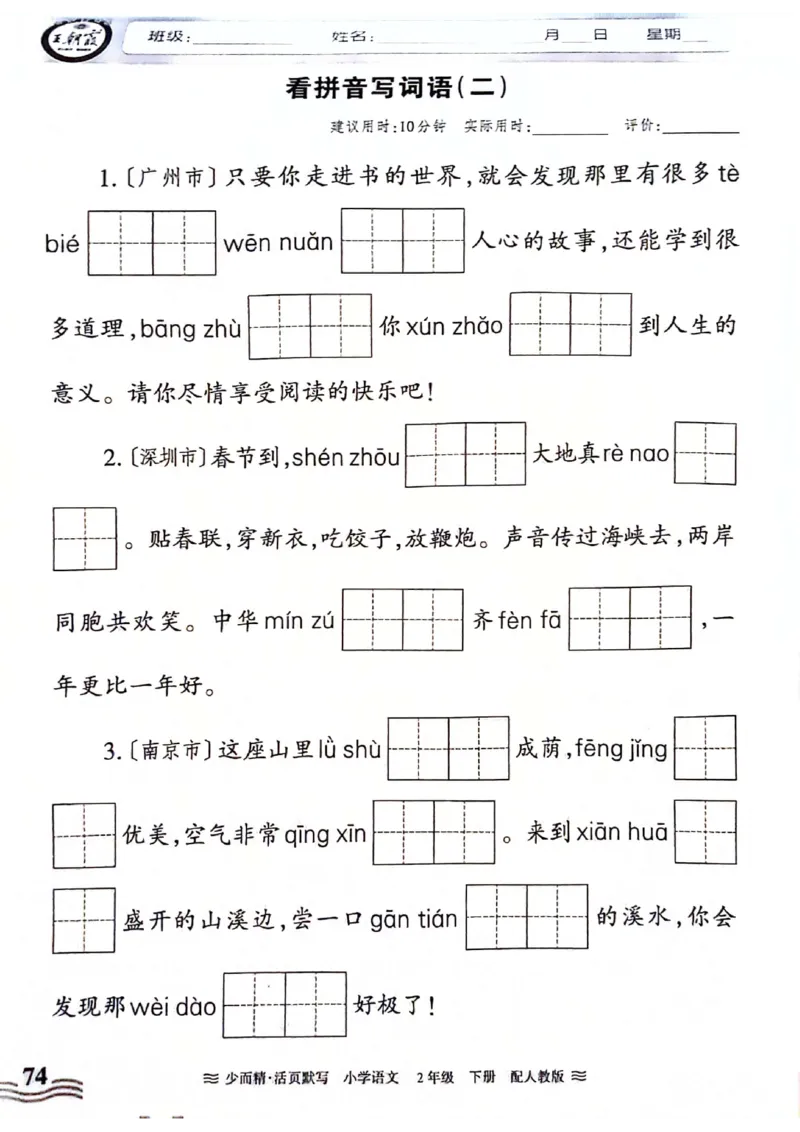 王朝霞 班级: 姓名: 月 日 星期
看拼音写词语(二)
建议用时:10分钟 实际用时: 评价:
1.〔广州市〕只要你走进书的世界,就会发现那里有很多tè
bié wēn nuǎn 人心的故事,还能学到很
多道理,bāng zhù 你xún zhǎo 到人生的
意义。请你尽情享受阅读的快乐吧!
2.〔深圳市〕春节到,shén zhōu 大地真rè nao
。贴春联,穿新衣,吃饺子,放鞭炮。声音传过海峡去,两岸
同胞共欢笑。中华mín zú 齐fèn fā ,一
年更比一年好。
3.〔南京市〕这座山里lǜ shù 成荫,fēng jǐng
优美,空气非常qīng xīn 。来到xiān huā
盛开的山溪边,尝一口gān tián 的溪水,你会
发现那wèi dào 好极了!
74 少而精·活页默写 小学语文 2年级 下册 配人教版